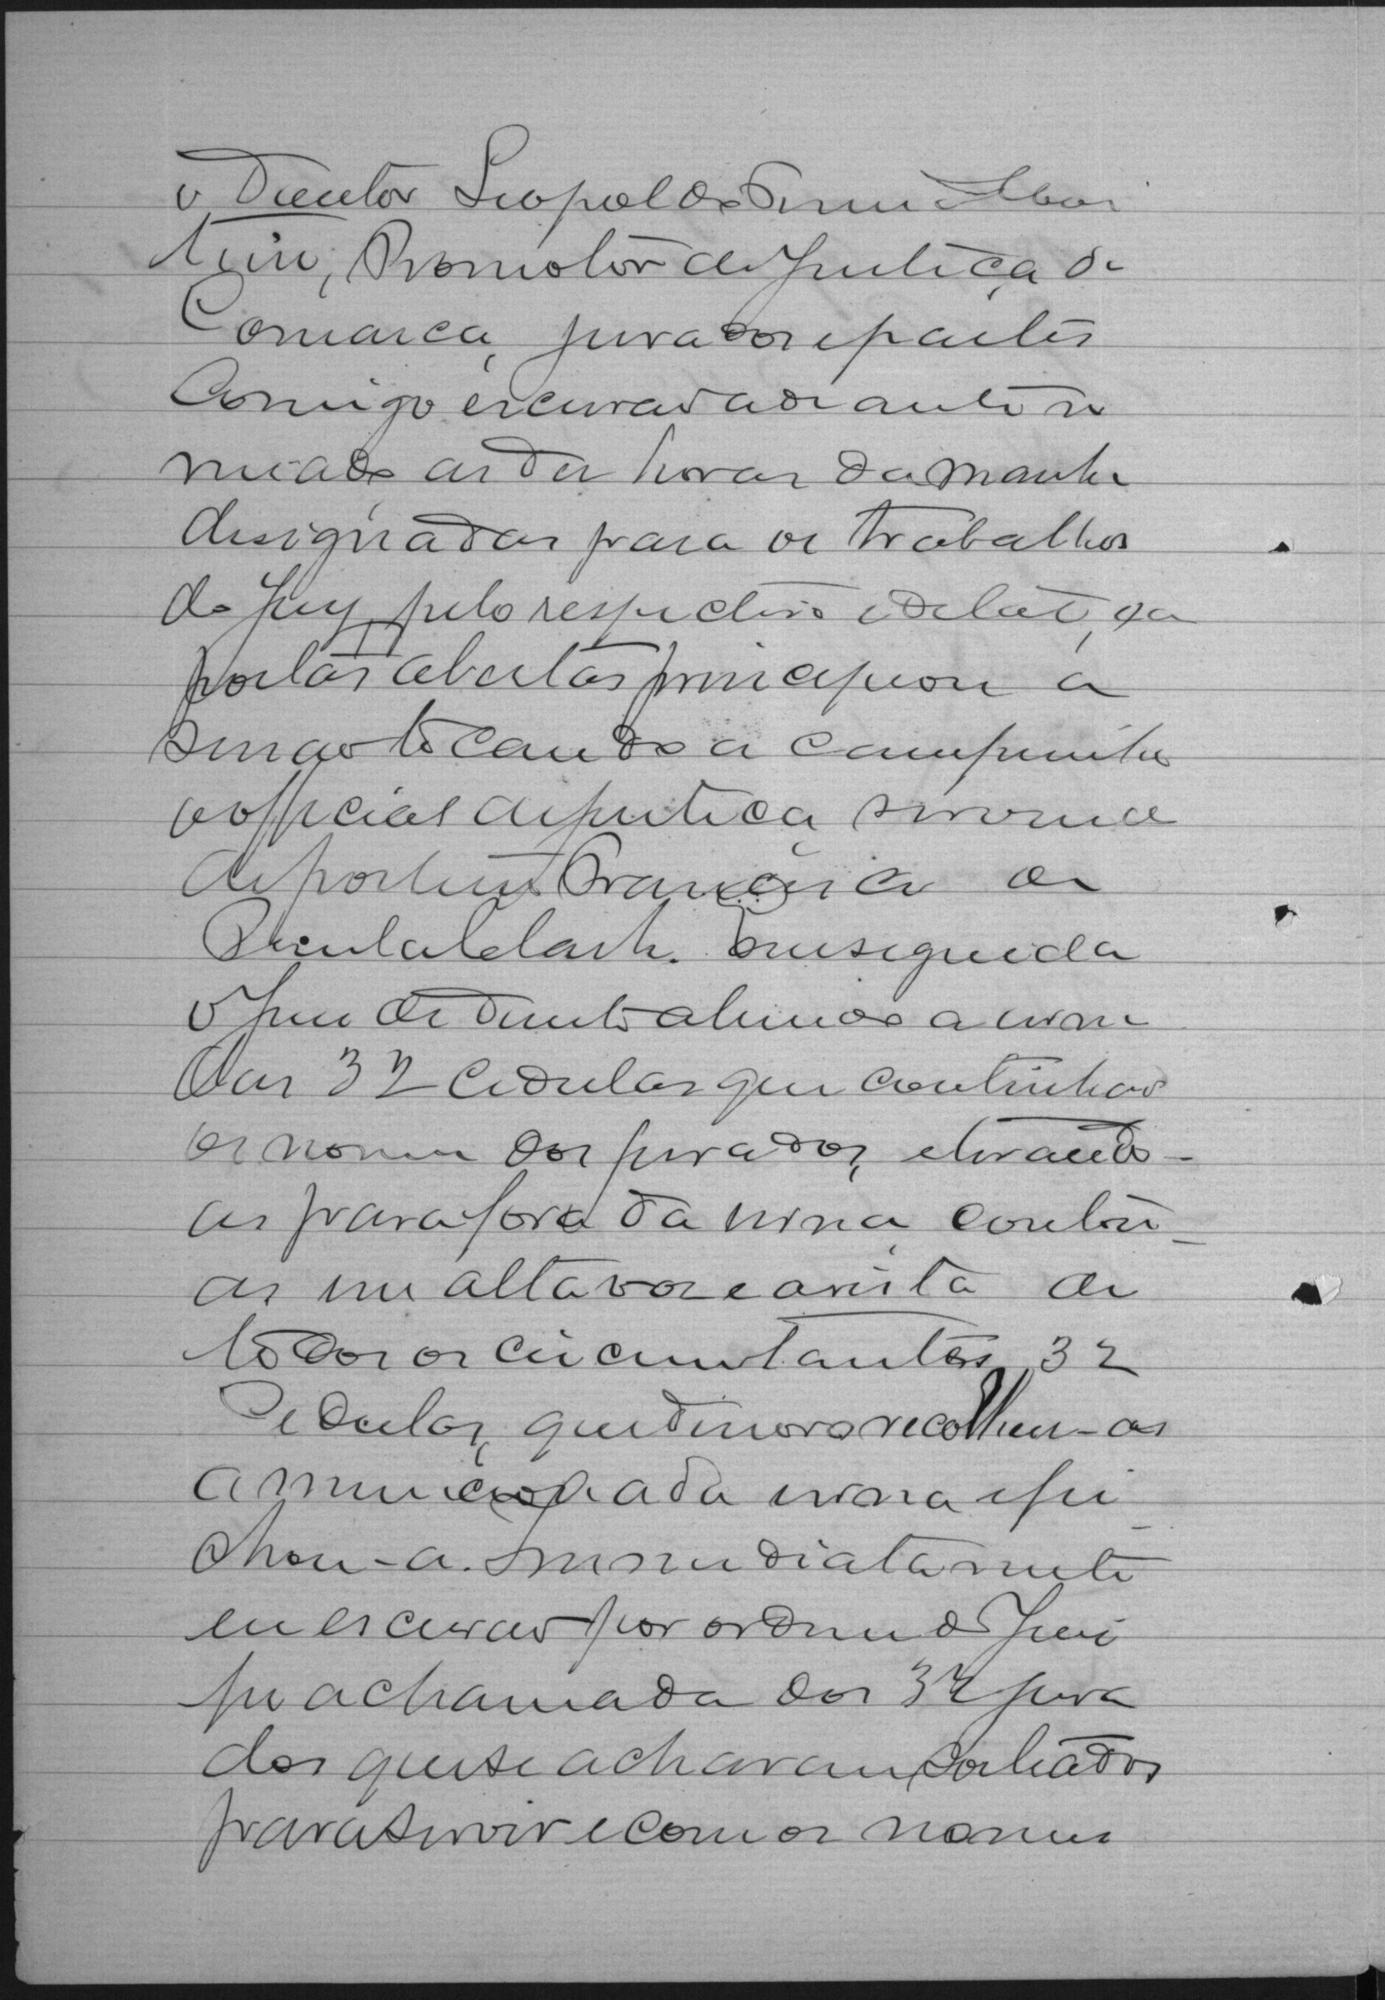 o Doutor Leopoldo
Promotor de Justiça da
Comarca, jurados e partes
Comigo escrivão adeante no
meado as dez horas da manhã
designadas para os trabalhos
do Jury, pelo respectivo edital, a
portas abertas principiou a
sessão tocando a campainha
o official de justiça servindo
de porteiro Francisco de
Paula Em seguida
o Juiz de Direito abrindo a urna
das 32 cedulas que continhão
os nomes dos jurados, e tirando-
as para fora da urna, contou-
as em alta voz e a vista de
todos os circumstantes 32
Cedulas, que de novo recolheu-as
a mencionada urna e fe
chou-a. Immediatamente
eu escrivão por ordem do Juiz
fiz a chamada dos 32 jura
dos que se achavam sorteados
para servir e com os nomes